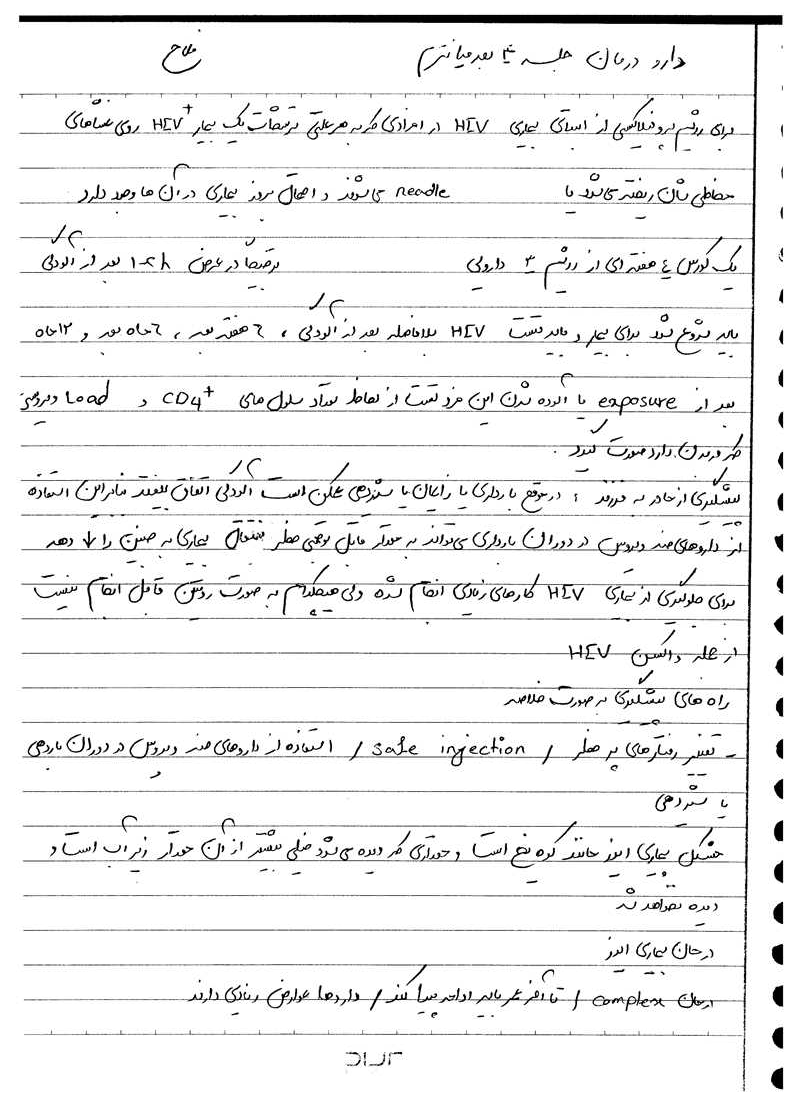 دارو درمان جلسه ۴ بعد میانترم فلاح
برای رژیم پروفیلاکسی از ابتلای بیماری HIV در افرادی که به هر علتی ترشحات یک بیمار HIV+ روی غشاهای
مخاطی شان ریخته می‌شود یا needle می‌شوند و احتمال بروز بیماری در آن ها وجود دارد
یک کورس ٤ هفته ای از رژیم ۳ دارویی ترجیحاً در عرض ۱-۲h بعد از آلودگی
باید شروع شود برای بیمار و باید تست HIV بلافاصله بعد از آلودگی ، ۶ هفته بعد ، ۶ ماه بعد و ۱۲ ماه
بعد از exposure یا آلوده شدن این فرد تست از لحاظ تعداد سلول های CD4+ و Load ویروسی
که در بدن دارد صورت گیرد .
پیشگیری از مادر به فرزند : در موقع بارداری یا زایمان یا شیردهی ممکن است آلودگی اتفاق بیفتد بنابراین استفاده
از داروهای ضد ویروس در دوران بارداری می‌تواند به مقدار قابل توجهی خطر انتقال بیماری به جنین را ↓ دهد
برای جلوگیری از بیماری HIV کارهای زیادی انجام شده ولی هیچکدام به صورت روتین قابل انجام نیست
از جمله واکسن HIV
راه های پیشگیری به صورت خلاصه
- تغییر رفتارهای پر خطر / safe injection / استفاده از داروهای ضد ویروس در دوران بارداری
یا شیردهی
مشکل بیماری ایدز مانند کوه یخ است و مقداری که دیده می‌شود خیلی بیشتر از آن مقدار زیر آب است و
دیده نخواهد شد
درمان بیماری ایدز
درمان complex / تا آخر عمر باید ادامه پیدا کند / داروها عوارض زیادی دارند